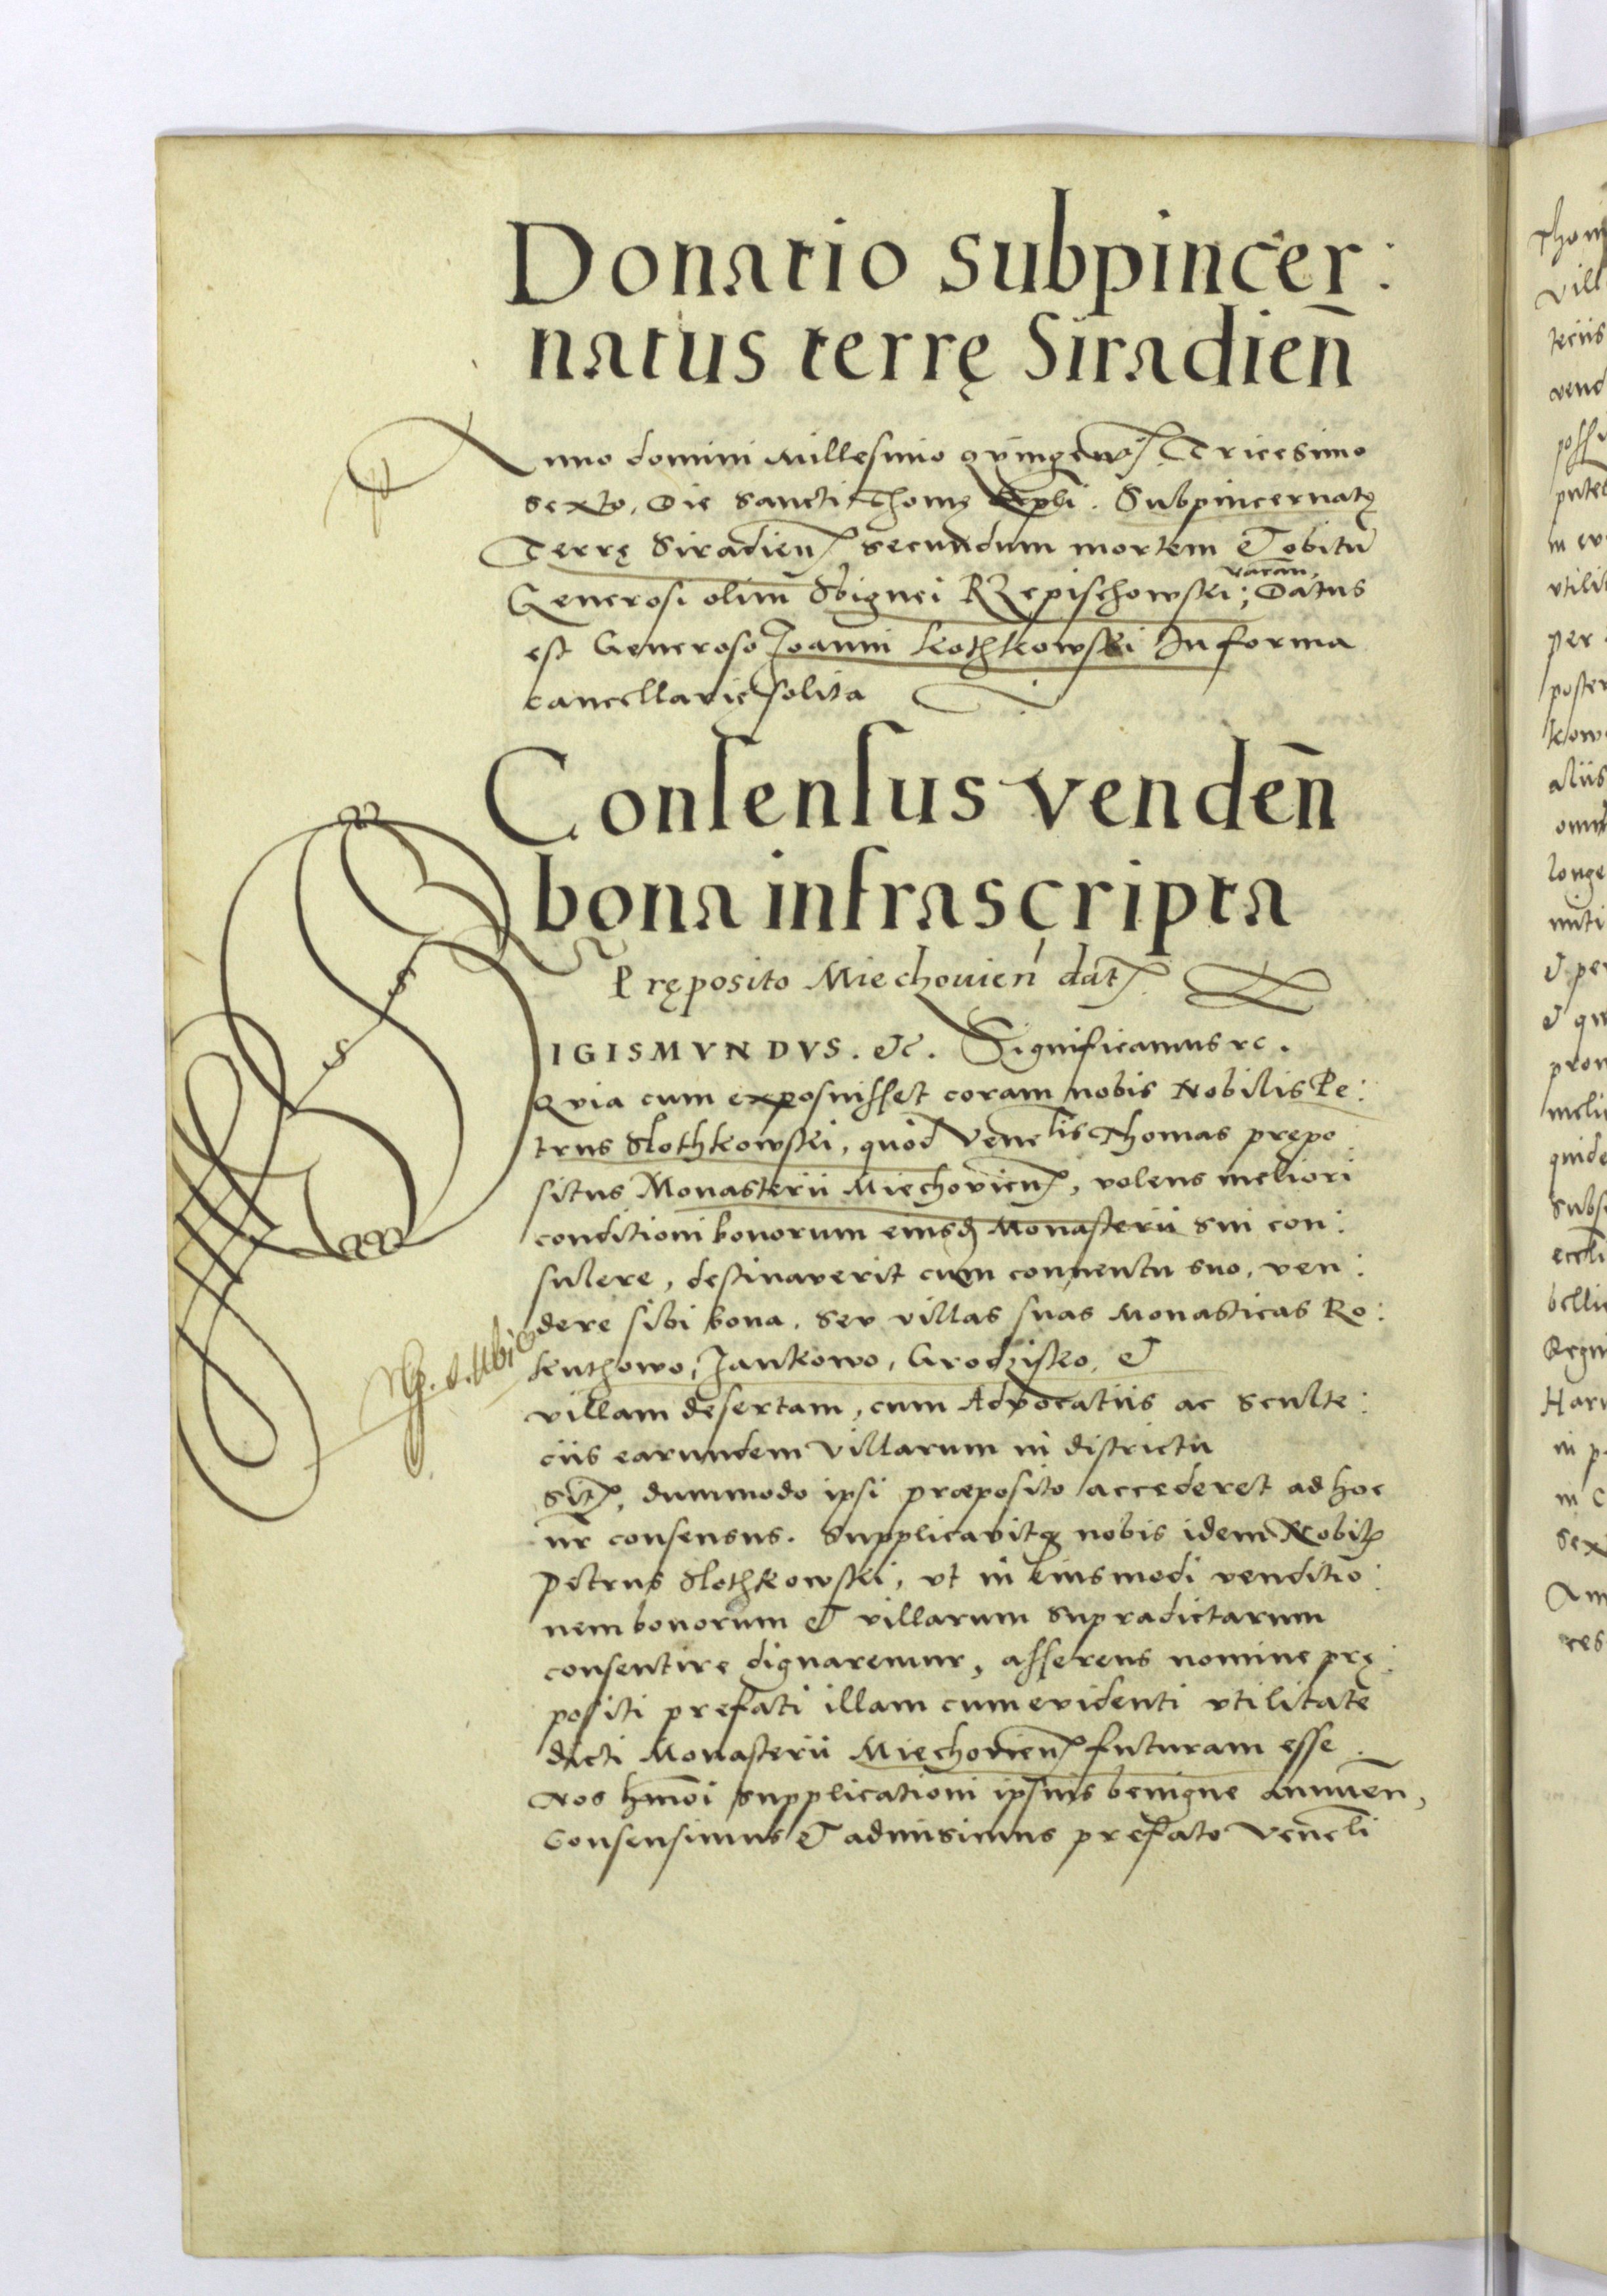 Donatio subpincer:
natus terrę Siradien̄
Anno domini Millesimo qvingen̄. Tricesimo
sexto, Die Sancti Thomę Ap̄li. Subpincernatꝫ
Terrę Siradien̄ secundum mortem & obitū
vacan̄,
Generosi olim Sbignei RZepischowski; Datus
est Generoso Joanni Kothkowski In forma
cancellarię solita
Consensus venden̄
bona infrascripta
Pręposito Miechouien̄ dat̄.
SIGISMVNDVS. &c. Significamus &c.
Qvia cum exposuisset coram nobis Nobilis Pe:
trus Slothkowski, quod Venelis Thomas prepo
situs Monasterii Miechovien̄, volens meliori
conditioni bonorum eiusd̄ Monasterii sui con:
sulere, destinaverit cum conuentu suo, ven:
dere sibi bona, Sev villas suas Monasticas Ro:
kuthowo, Jankowo, Grodzisko, &
villam desertam, cum Advocatiis ac Sculte:
ciis earundem villarum in districtu
sit̄, dummodo ipsi præposito accederet ad hoc
nr̄ consensus. Supplicavitqꝫ nobis idem Nobil̄
Petrus Slothkowski, vt in eiusmodi venditio:
nem bonorum & villarum supradictarum
consentire dignaremur, asserens nomine prę:
positi prefati illam cum evidenti vtilitate
dicti Monasterii Miechovien̄ futuram esse.
Nos hmōi supplicationi ipsius benigne annuen̄,
Consensimus & admisimus prefato Venēli